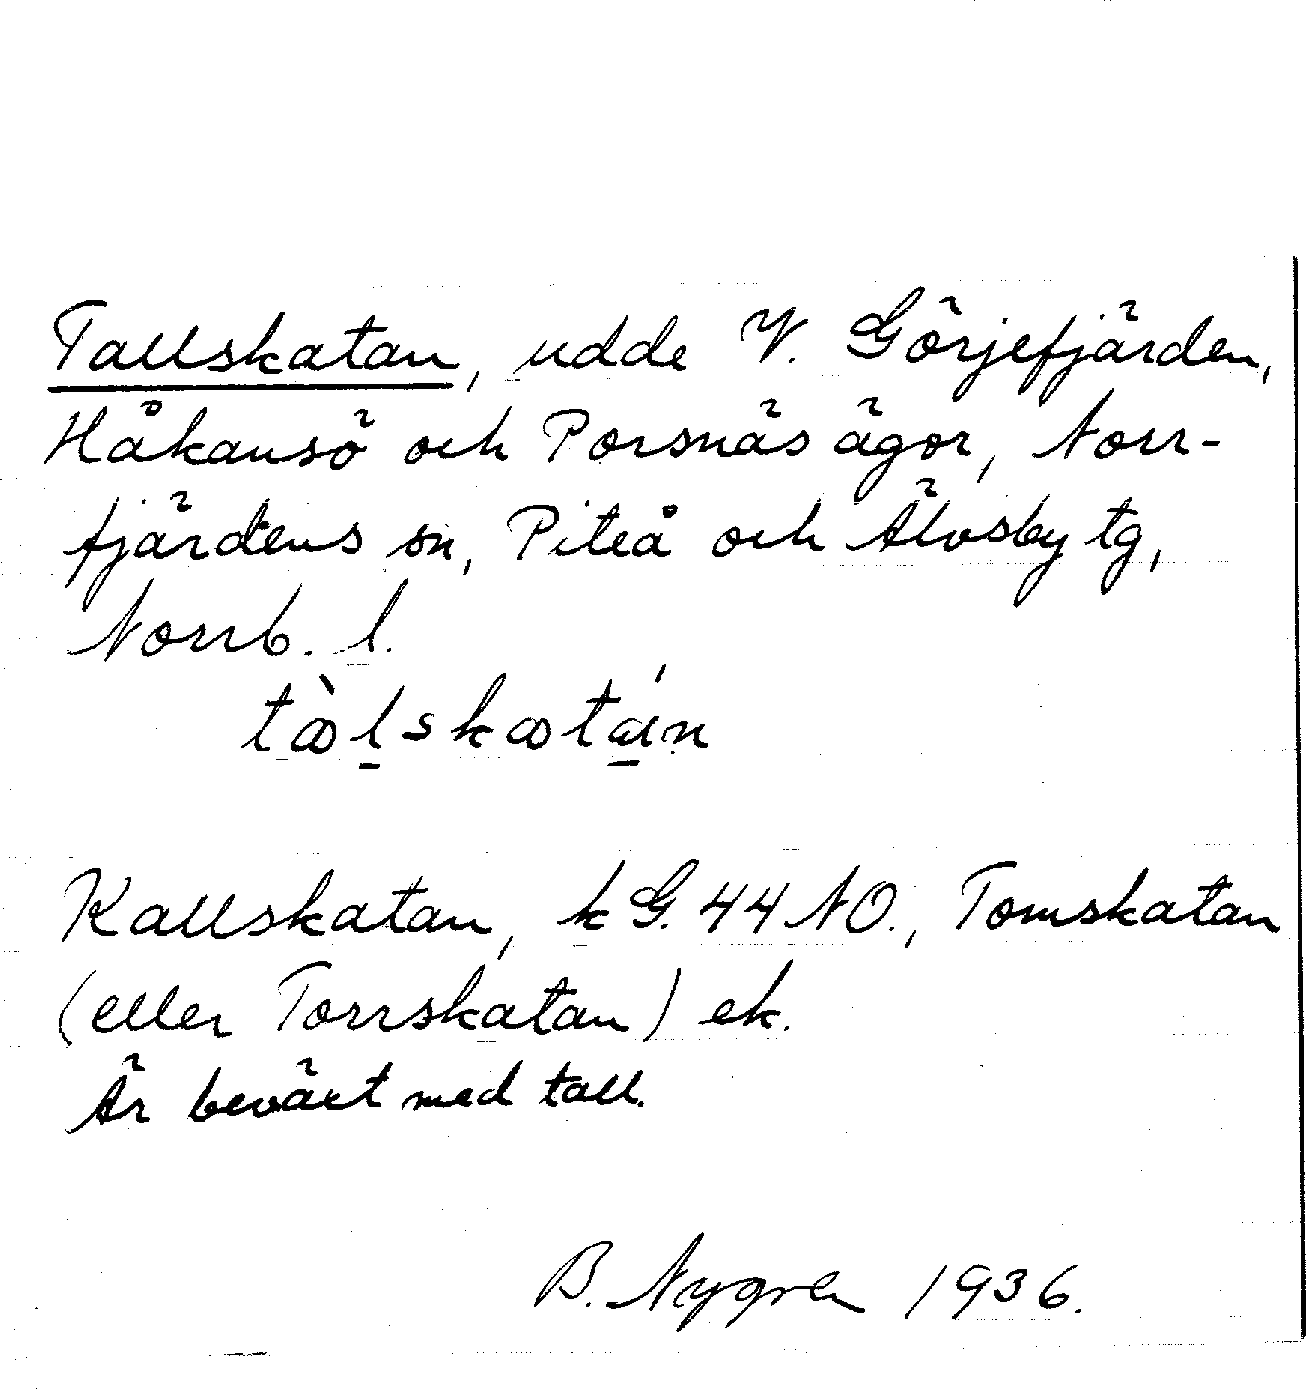 Tallskatan, udde V. Görjefjärden,
Håkansö och Porsnäs ägor, Norr-
fjärdens sn, Piteå och Älvsby tg,
Norrb. l.
Kallskatan, k G. 44 NO., Tomskatan
(eller Torrskatan) ek.
Är beväxt med tall.
B. Nygren 1936.